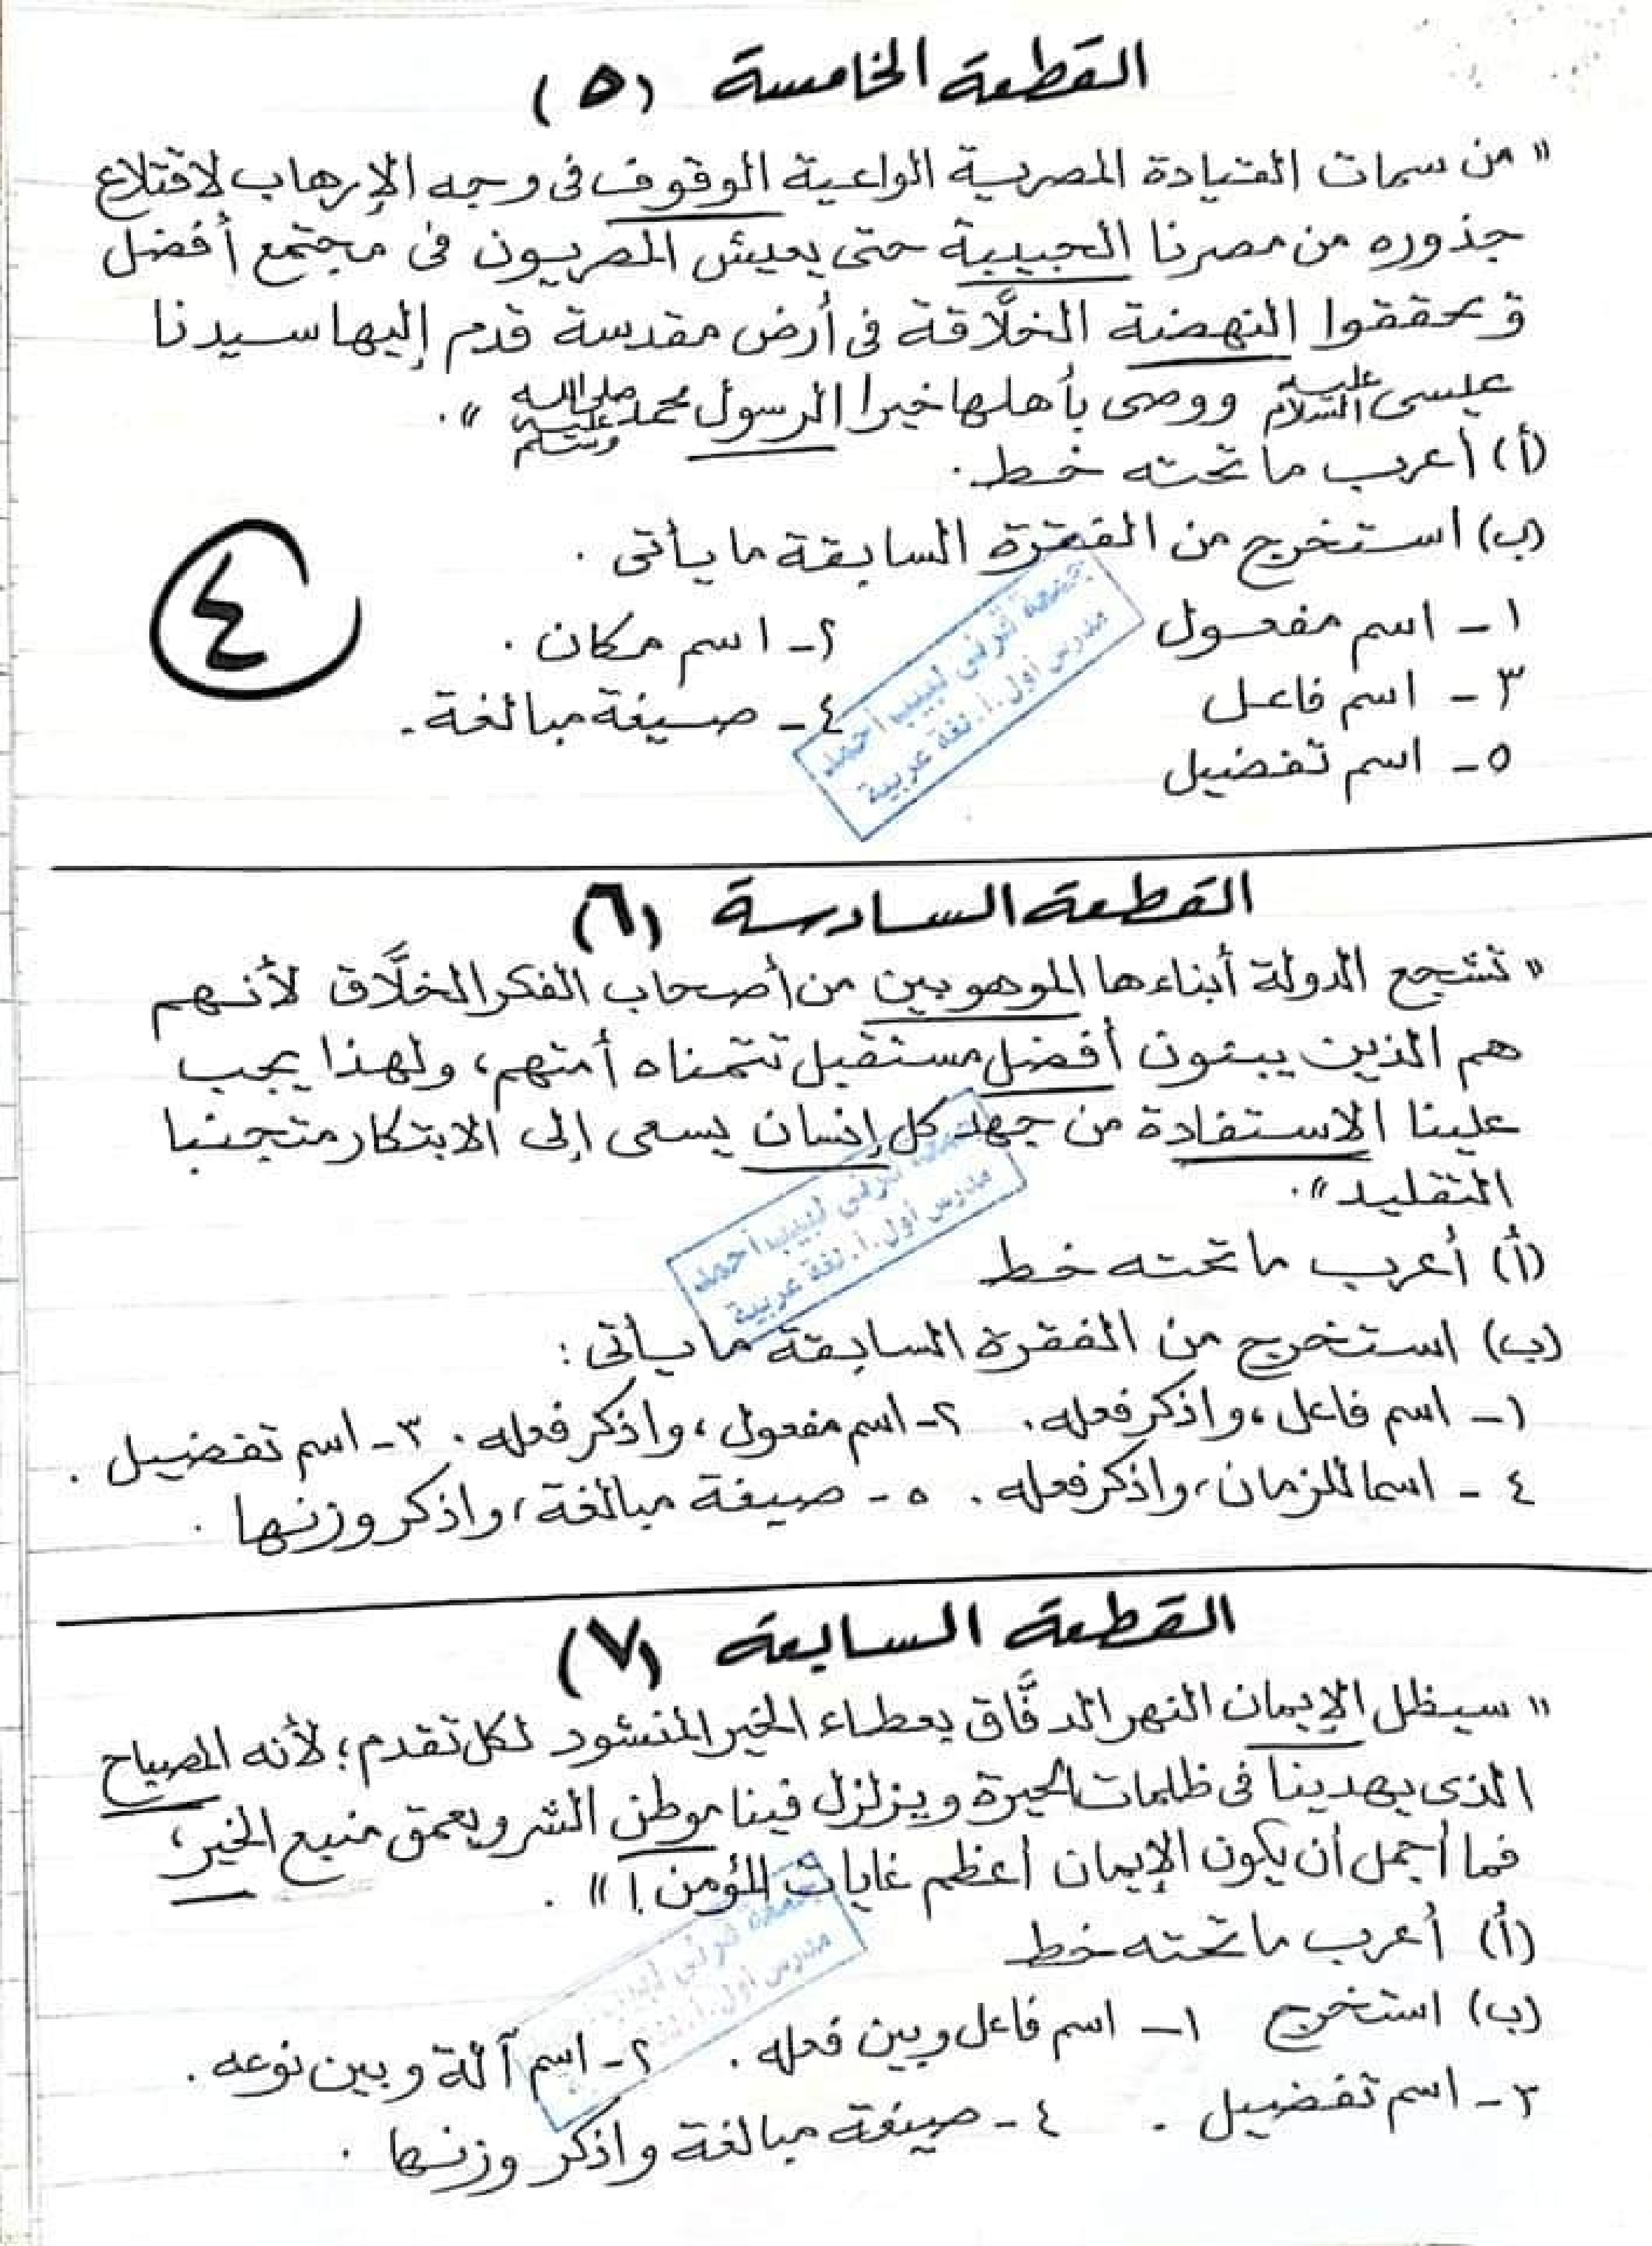 القطعة الخامسة (٥)
" من سمات القيادة المصرية الواعية الوقوف فى وجه الإرهاب لاقتلاع
جذوره من مصرنا الحبيبة حتى يعيش المصريون فى مجتمع أفضل
ويحققوا النهضة الخلَّاقة فى أرض مقدسة قدم إليها سيدنا
عيسى عليه السلام ووصى بأهلها خيرا الرسول محمد صلى الله عليه وسلم ".
(أ) أعرب ما تحته خط .
(ب) استخرج من الفقرة السابقة ما يأتى .
١ - اسم مفعول ٢ - اسم مكان .
٣ - اسم فاعل ٤ - صيغة مبالغة .
٥ - اسم تفضيل
٤
جمعه قرنى لبيب أحمد
مدرس أول .أ. لغة عربية
القطعة السادسة (٦)
" تشجع الدولة أبناءها الموهوبين من أصحاب الفكر الخلَّاق لأنهم
هم الذين يبنون أفضل مستقبل تتمناه أمتهم، ولهذا يجب
علينا الاستفادة من جهد كل إنسان يسعى إلى الابتكار متجنبا
التقليد ".
(أ) أعرب ما تحته خط
(ب) استخرج من الفقرة السابقة ما يأتى :
١ - اسم فاعل، واذكر فعله. ٢ - اسم مفعول، واذكر فعله . ٣ - اسم تفضيل .
٤ - اسما للزمان، واذكر فعله . ٥ - صيغة مبالغة، واذكر وزنها .
قرنى لبيب أحمد
مدرس أول .أ. لغة عربية
القطعة السابعة (٧)
" سيظل الإيمان النهر الدفَّاق بعطاء الخير المنشود لكل تقدم؛ لأنه المصباح
الذى يهدينا فى ظلمات الحيرة ويزلزل فينا موطن الشر ويعمق منبع الخير،
فما أجمل أن يكون الإيمان أعظم غايات المؤمن ! ".
(أ) أعرب ما تحته خط
(ب) استخرج ١ - اسم فاعل وبين فعله . ٢ - اسم آلة وبين نوعه .
٣ - اسم تفضيل . ٤ - صيغة مبالغة واذكر وزنها .
مدرس أول .أ.